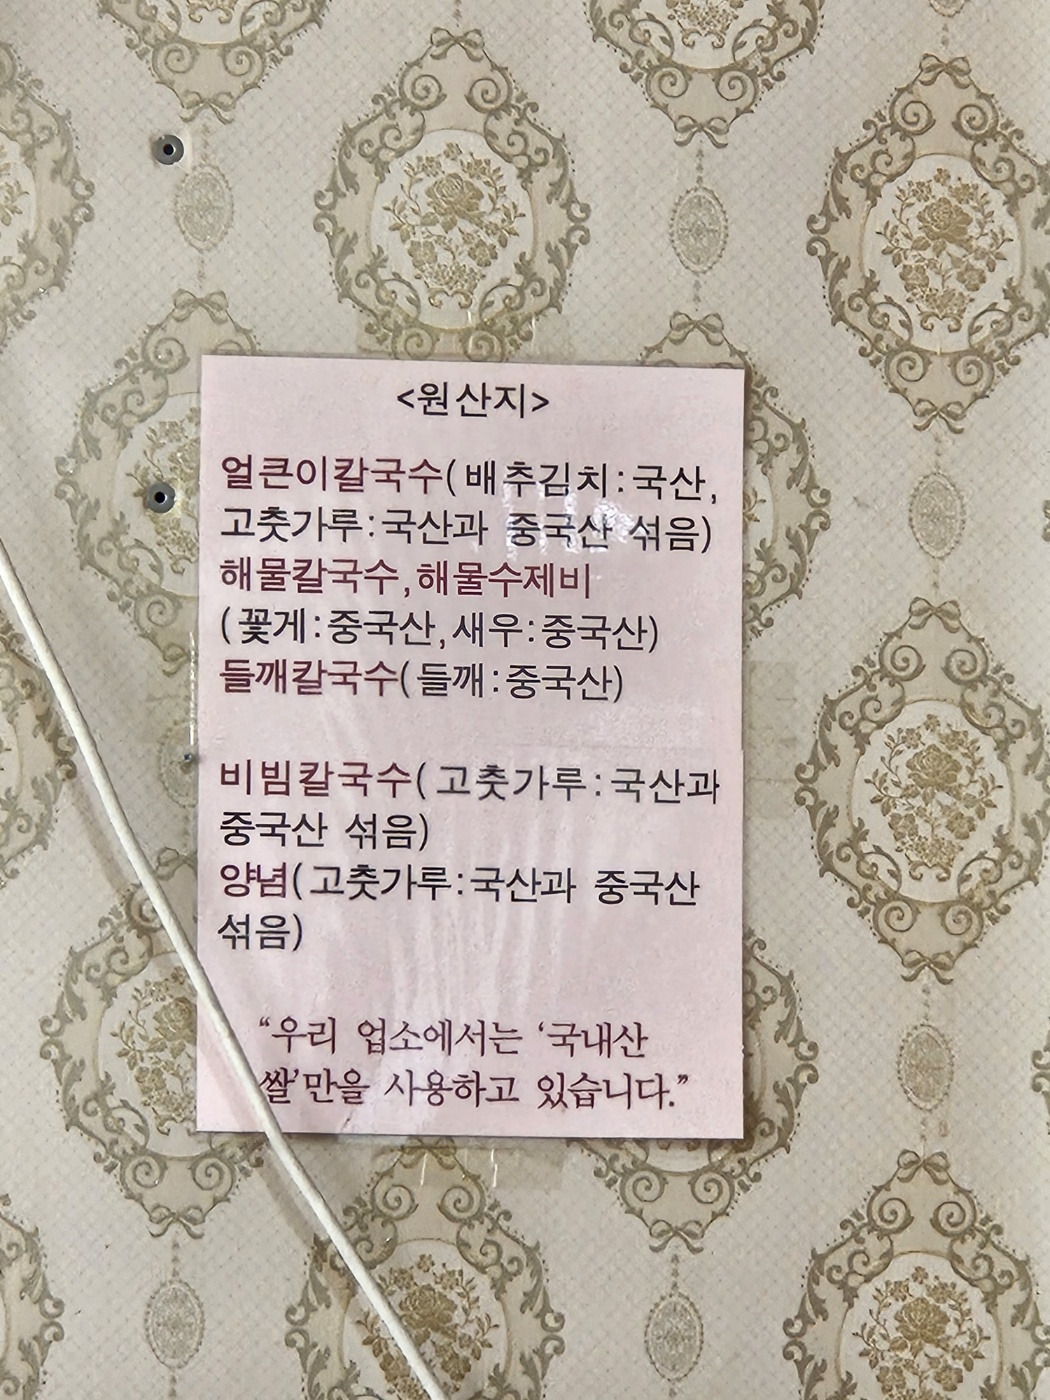 <원산지>
얼큰이칼국수(배추김치:국산,
고춧가루:국산과 중국산 섞음)
해물칼국수,해물수제비
(꽃게:중국산,새우:중국산)
들깨칼국수(들깨:중국산)
비빔칼국수(고춧가루:국산과
중국산 섞음)
양념(고춧가루:국산과 중국산
섞음)
“우리 업소에서는 ‘국내산
쌀’만을 사용하고 있습니다.”